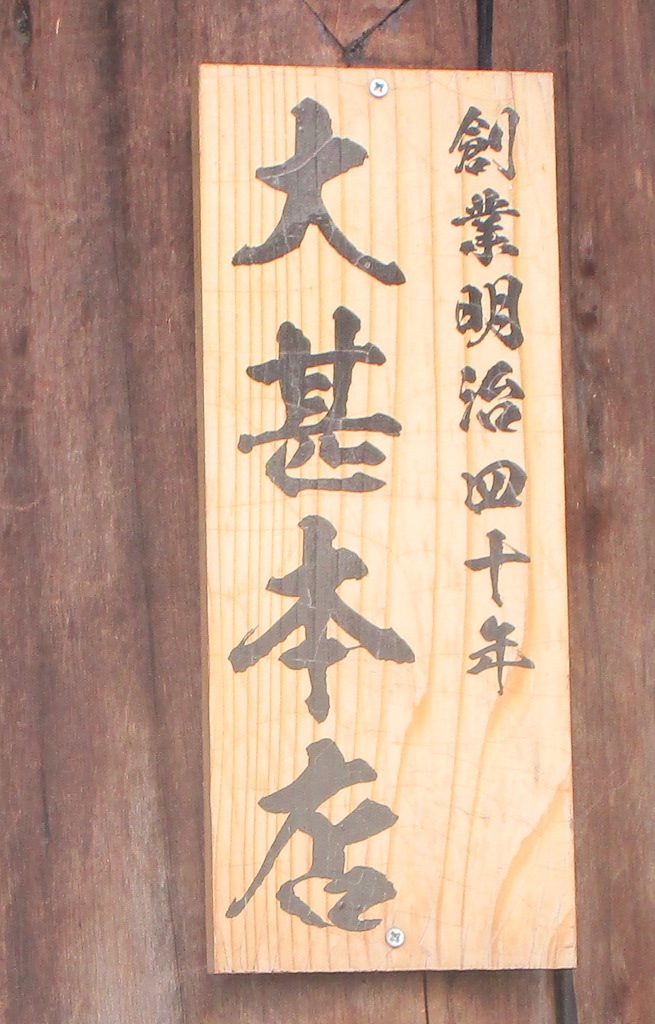 創業明治四十年
大甚本店